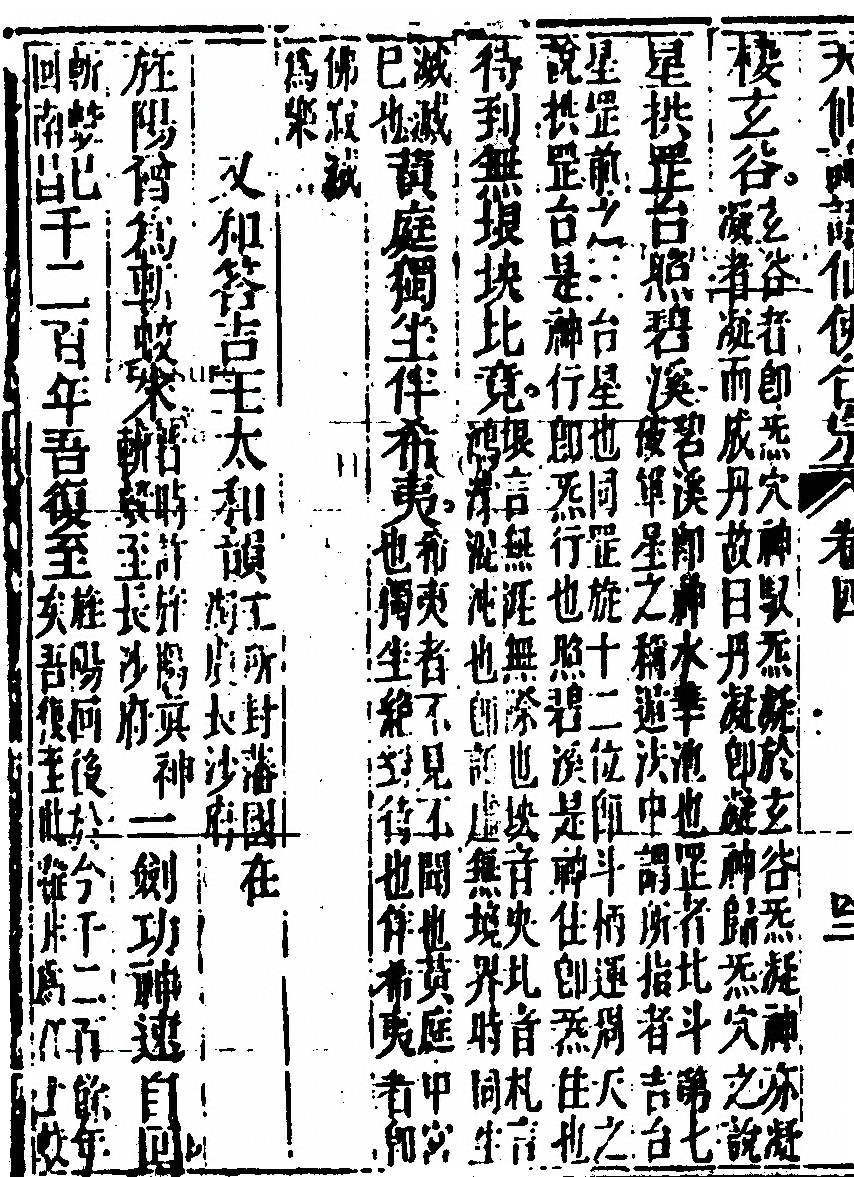 天仙論語仙佛合宗 卷四 四二
棲玄谷。
玄谷者即炁穴神馭炁凝於玄谷炁凝神亦凝
凝者凝而成丹故曰丹凝即凝神歸炁穴之說
星拱罡台照碧溪
碧溪即神水華池也罡者北斗第七
破軍星之稱遁法中謂所指者吉台
星罡前之三台星也同罡旋十二位即斗柄運周天之
說拱罡台是神行即炁行也照碧溪是神住即炁住也
得到無垠坱圠竟。
垠言無涯無際也坱音央圠音札言
鴻濛混沌也即證虛無境界時同生
滅滅
已也
黃庭獨坐伴希夷。
希夷者不見不聞也黃庭中宮
也獨坐絕對待也伴希夷者即
佛寂滅
為樂
又和答吉王太和韻
王所封藩國在
湖廣長沙府
旌陽曾為斬蛟來
昔時許旌陽真神
斬蛟至長沙府
一劍功神速自回
斬蛟已
回南昌
千二百年吾復至
旌陽回後於今千二百餘年
矣吾復至此雖非為